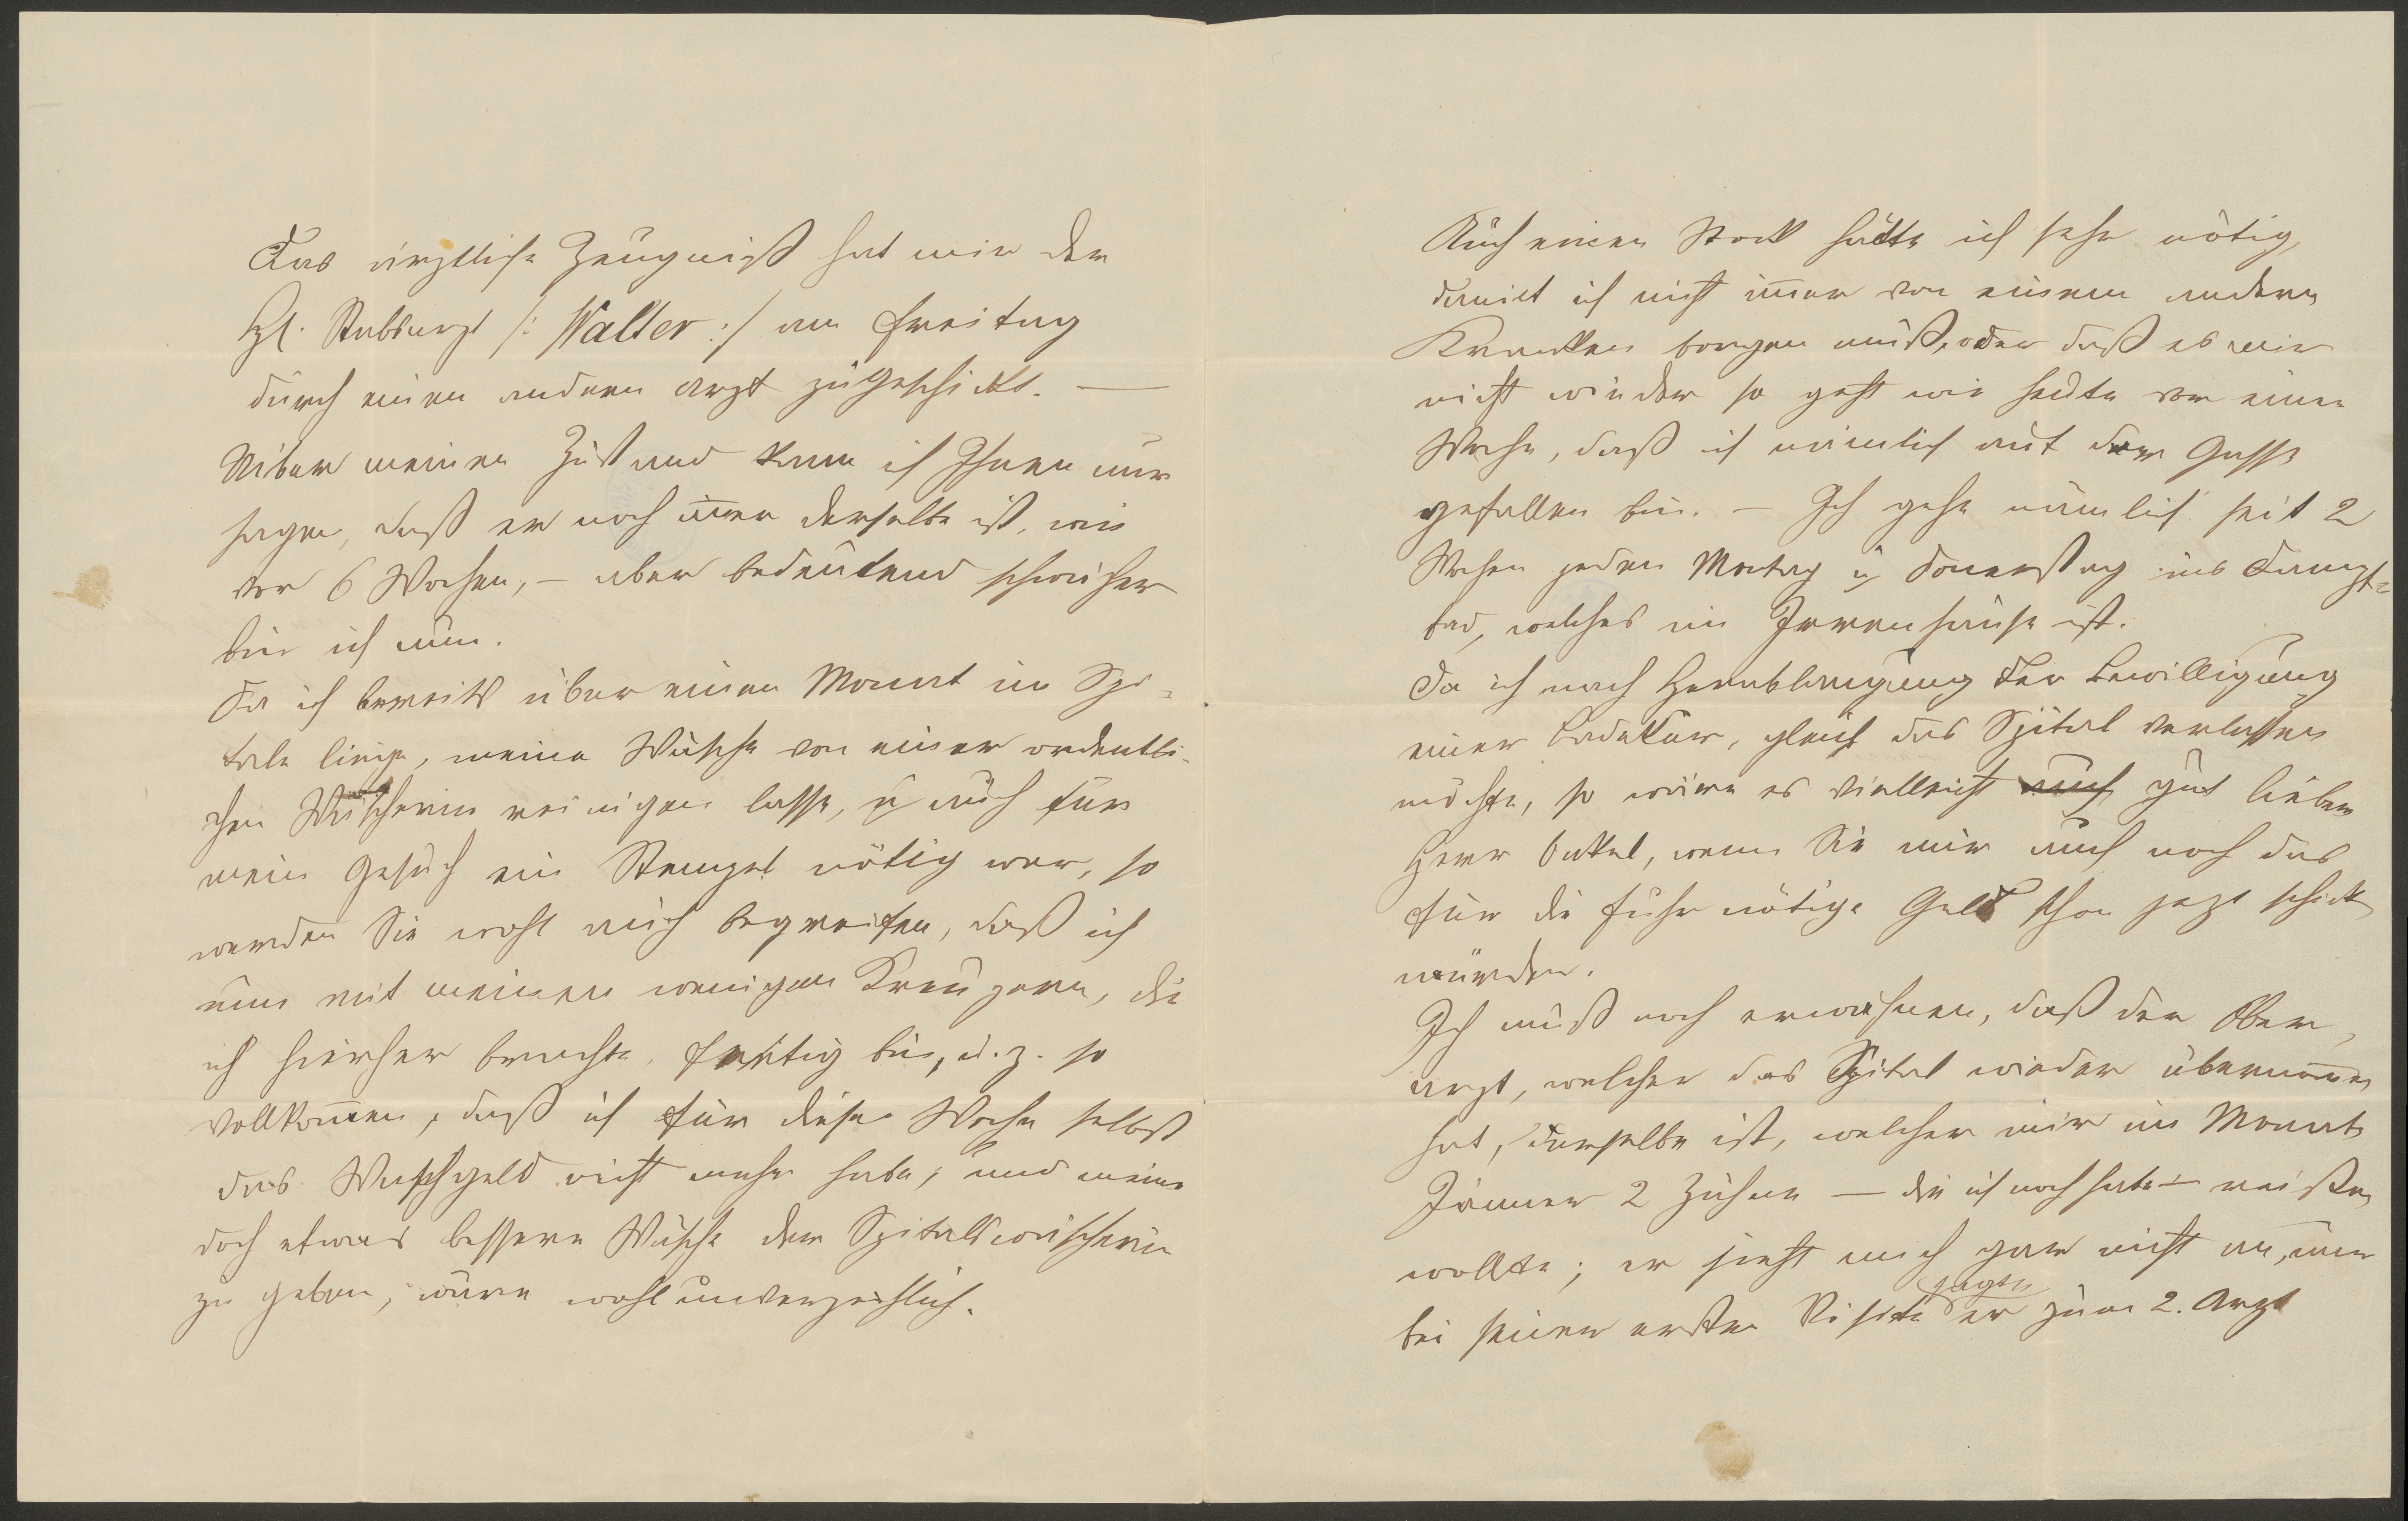 Das ärztliche Zeugniß hat mir der
H. Stabsarzt /: Walter :/ am Freitag
durch einen andern Arzt zugeschikt. —
Uiber meinen Zustand kann ich Ihnen nur
sagen, daß er noch im̅er derselbe ist, wie
vor 6 Wochen, – aber bedeutend schwächer
bin ich nun.
Da ich bereits über einen Monat im Spi-
tale liege, meine Wäsche von einer ordentli-
chen Wäscherin reinigen lasse, u auch für
mein Gesuch ein Stempel nötig war, so
werden Sie wohl auch begreifen, daß ich
nun mit meinen wenigen Kreuzern, die
ich hierher brachte, fertig bin, u. z. so
vollkom̅en, daß ich für diese Woche selbst
das Waschgeld nicht mehr habe, und meine
doch etwas bessere Wäsche der Spitalswäscherin
zu geben, wäre wohl unverzeihlich.
Auch einen Stock hätte ich sehr nötig,
damit ich nicht im̅er von einem andern
Kranken borgen muß, oder daß es mir
nicht wieder so geht wie heute vor einer
Woche, daß ich nämlich auf der Gasse
gefallen bin. – Ich gehe nämlich seit 2
Wochen jeden Montag u Don̅erstag ins Dampf-
bad, welches im Irrenhause ist.
Da ich nach Herablangung der Bewilligung
einer Badekur, gleich das Spital verlassen
möchte, so wäre es vielleicht auch gut lieber
Herr Onkel, wenn Sie mir auch noch das
für die Fuhr nötige Geld schon jezt schick
würden.
Ich muß noch erwähnen, daß der Ober-
arzt, welcher das Spital wieder übernom̅en
hat, derselbe ist, welcher mir im Monat
Jänner 2 Zähne — die ich noch habe — reißen
wollte; er sieht mich gar nicht an, nur
bei seiner ersten Visite sagte er zum 2. Arzt